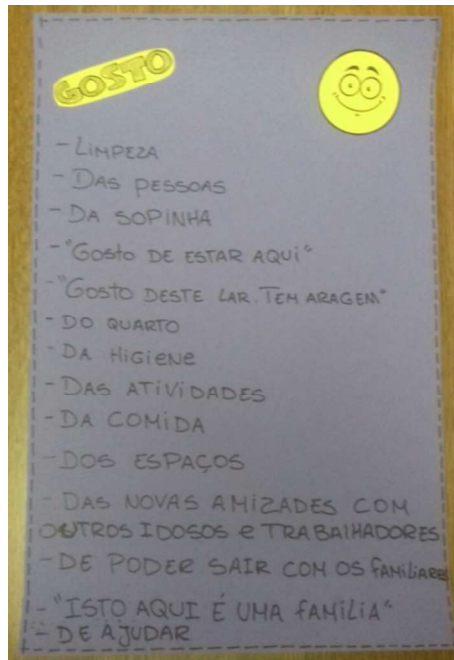 GOSTO
- LIMPEZA
- DAS PESSOAS
- DA SOPINHA
- "GOSTO DE ESTAR AQUI"
- "GOSTO DESTE LAR. TEM ARAGEM"
- DO QUARTO
- DA HIGIENE
- DAS ATIVIDADES
- DA COMIDA
- DOS ESPAÇOS
- DAS NOVAS AMIZADES COM
OUTROS IDOSOS e TRABALHADORES
- DE PODER SAIR COM OS FAMILIARES
- "ISTO AQUI É UMA FAMILIA"
- DE AJUDAR